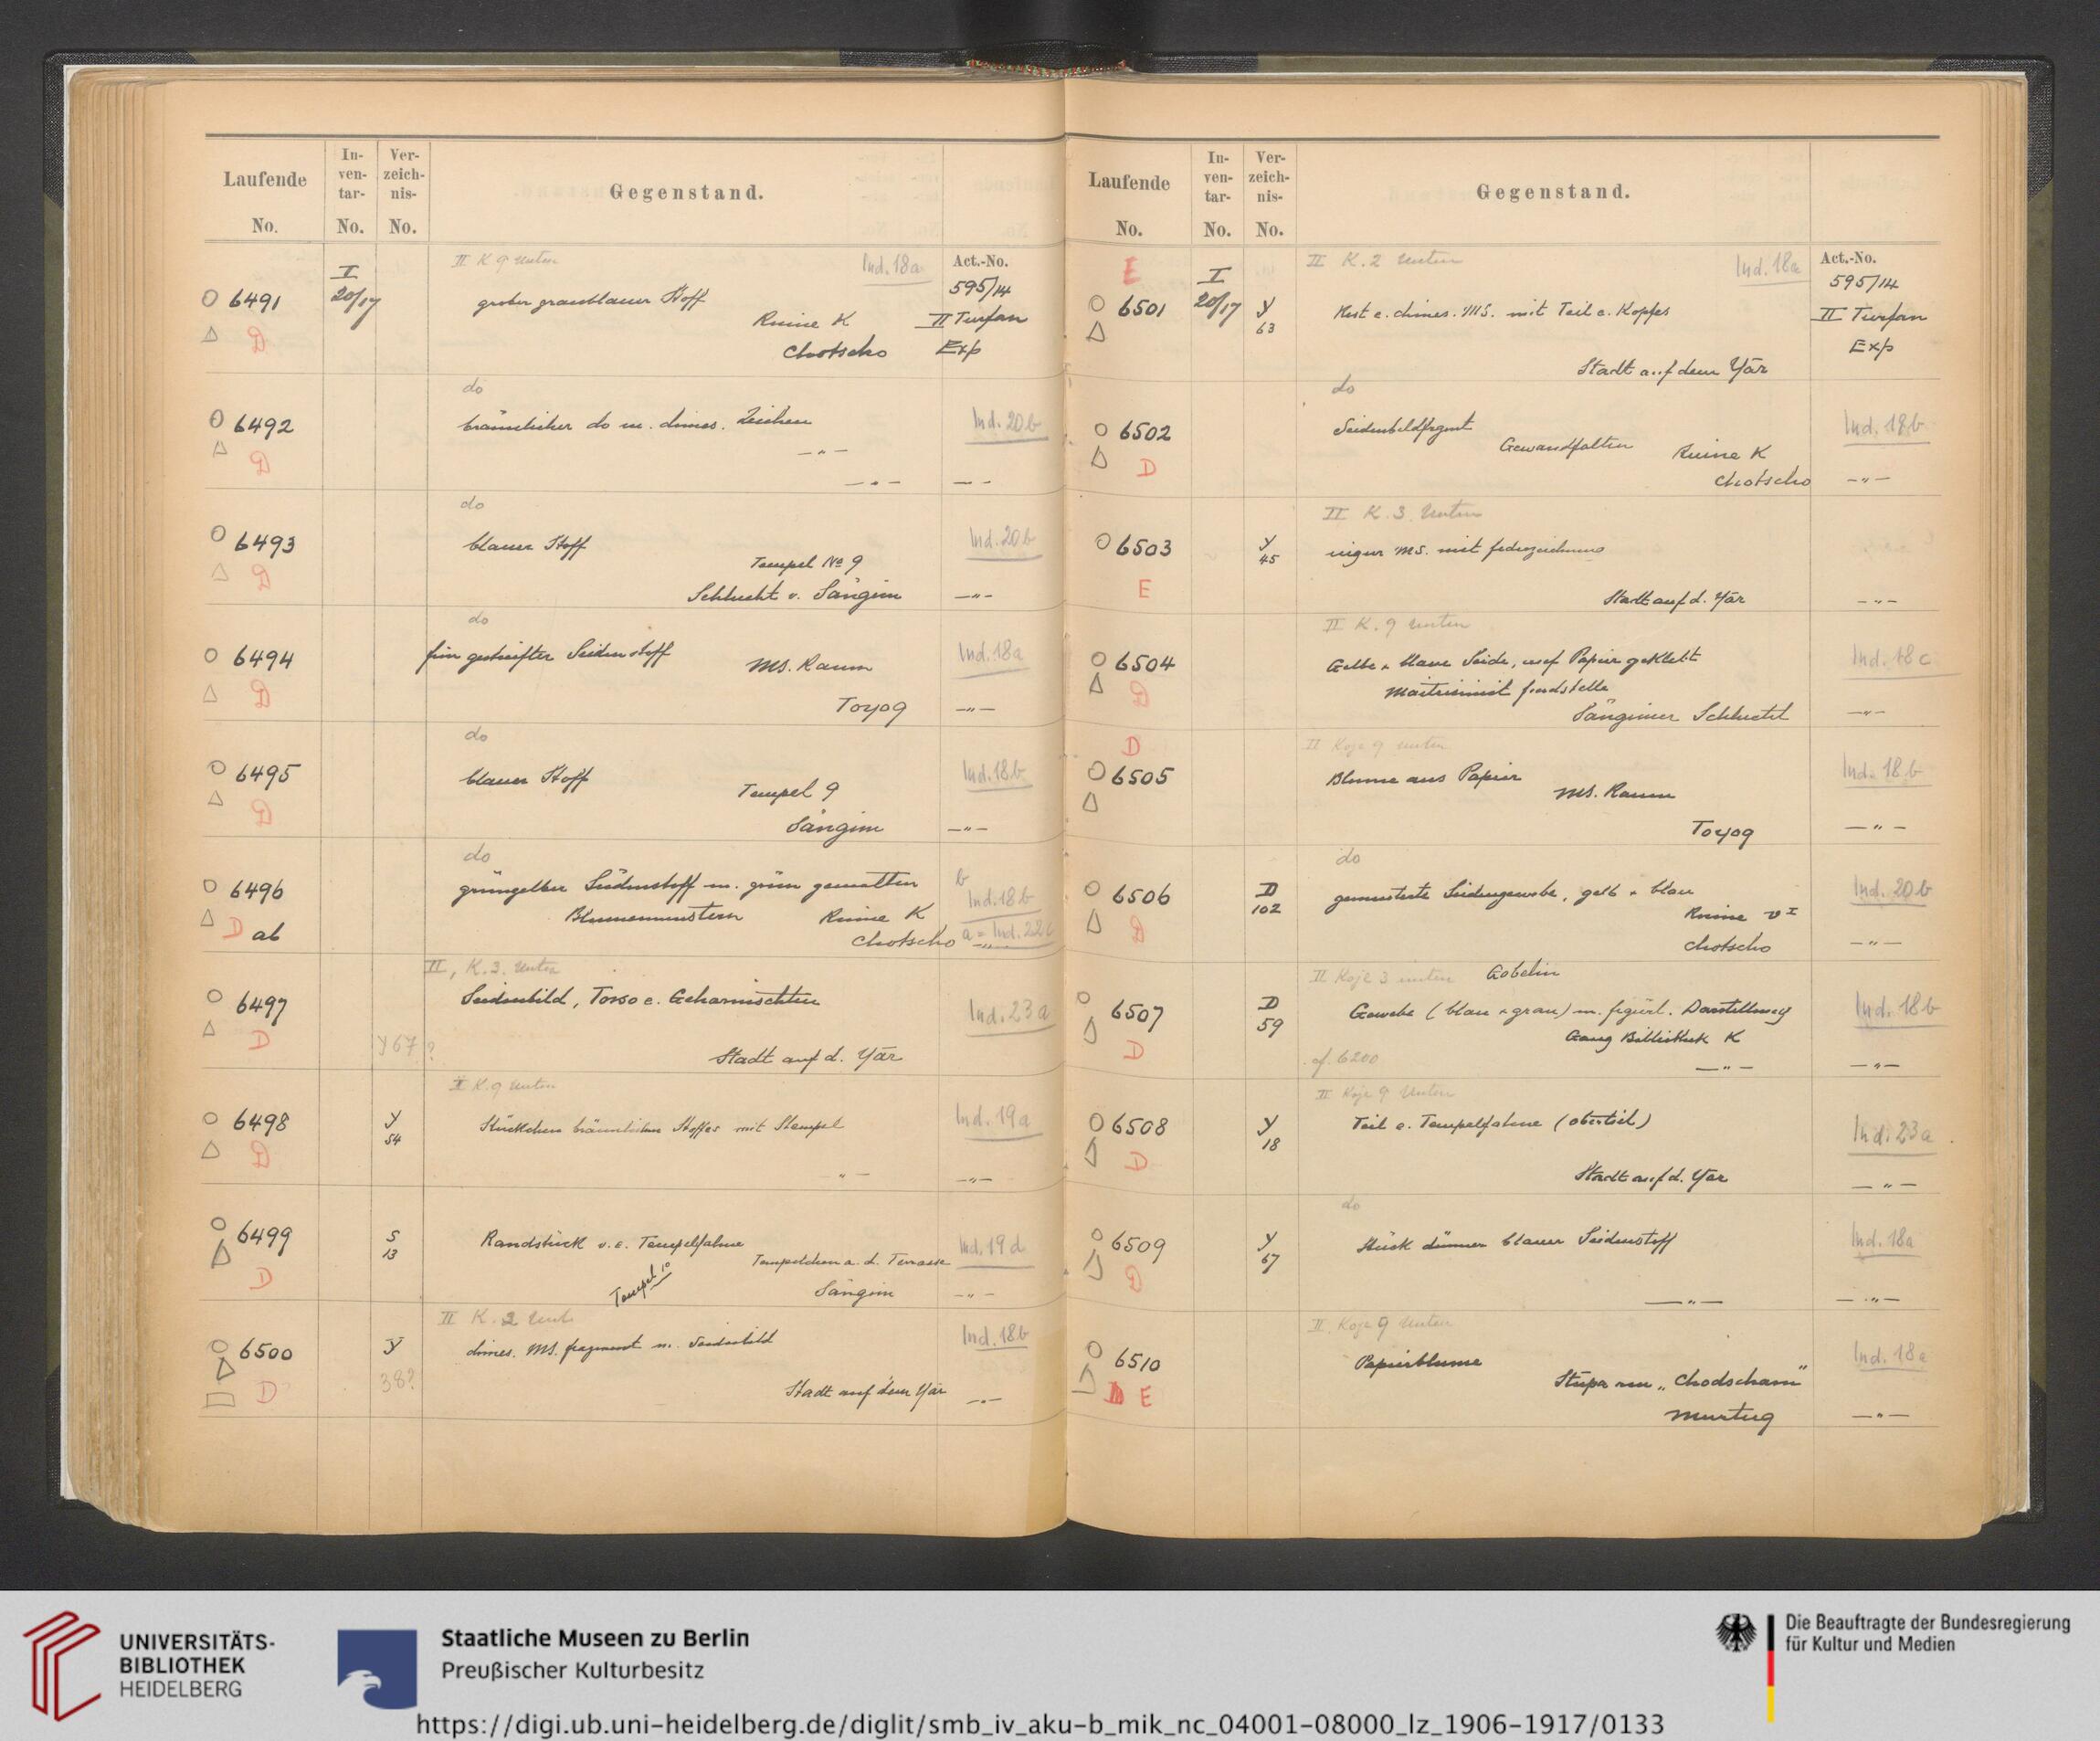 Laufende
No.
In-
ven-
tar-
No.
Ver-
zeich-
nis-
No.
Gegenstand.
II K 9 Unten
Ind. 18a
Act.-No.
595/14
6491
I
20/17
grober graublauer Stoff
Ruine K
II Turfan
D
Chotscho
Exp
do
6492
bräunlicher do m. chines. Zeichen
Ind. 20b
D
—„—
—„—
—„—
do
6493
blauer Stoff
Ind. 20b
Tempel No 9
D
Schlucht v. Sängim
—„—
do
6494
fein gestreifter Seidenstoff
MS. Raum
Ind. 18a
D
Toyog
—„—
do
6495
blauer Stoff
Tempel 9
Ind. 18b
D
Sängim
—„—
do
6496
grüngelber Seidenstoff m. grün gemalten
b
Ind. 18b
Blumenmustern
Ruine K
D ab
Chotscho
a = Ind. 22c
—„—
II, K. 3. Unten
6497
Seidenbild, Torso e. Geharnischten
Ind. 23a
D
Y 67 ?
Stadt auf d. Yār
II K. 9 Unten
6498
Y
54
Stückchen bräunlichen Stoffes mit Stempel
Ind. 19a
D
„—
—„—
6499
S
13
Randstück v. e. Tempelfahne
Tempelchen a. d. Terrasse
Ind. 19d
D
Tempel 10
Sängim
—„—
II K. 2 Unt.
6500
Y
38?
chines. MS. fragment m. Seidenbild
Ind. 18b
D
Stadt auf dem Yār
—„—
Laufende
No.
In-
ven-
tar-
No.
Ver-
zeich-
nis-
No.
Gegenstand.
E
II K. 2 Unten
Ind. 18a
Act.-No.
595/14
6501
I
20/17
Y
63
Rest e. chines. MS. mit Teil e. Kopfes
II Turfan
Exp
Stadt auf dem Yār
do
6502
Seidenbildfrgmt
Ind. 18b
D
Gewandfalten
Ruine K
Chotscho
—„—
II K. 3. Unten
6503
Y
45
uigur MS. mit federzeichnung
E
Stadt auf d. Yār
—„—
II K. 9 Unten
6504
Gelbe u. blaue Seide, auf Papier geklebt
Ind. 18c
D
Maitrisimit fundstelle
Sängimer Schlucht
—„—
D
II Koje 9 unten
6505
Blume aus Papier
Ind. 18b
MS. Raum
Toyog
—„—
do
6506
D
102
gemusterte Seidengewebe, gelb u. blau
Ind. 20b
D
Ruine VI
Chotscho
—„—
II Koje 3 unten
Gobelin
6507
D
59
Gewebe (blau u. grau) m. figürl. Darstellung
Ind. 18b
Gang Bibliothek K
D
cf. 6200
—„—
—„—
II Koje 9 Unten
6508
Y
18
Teil e. Tempelfahne (oberteil)
Ind. 23a
D
Stadt auf d. Yar
—„—
do
6509
Y
67
Stück dünner blauer Seidenstoff
Ind. 18a
D
—„—
—„—
II. Koje 9 Unten
6510
Papierblume
Ind. 18a
D E
Stupa am „Chodscham"
Murtug
—„—
UNIVERSITÄTS-
BIBLIOTHEK
HEIDELBERG
Staatliche Museen zu Berlin
Preußischer Kulturbesitz
Die Beauftragte der Bundesregierung
für Kultur und Medien
https://digi.ub.uni-heidelberg.de/diglit/smb_iv_aku-b_mik_nc_04001-08000_lz_1906-1917/0133